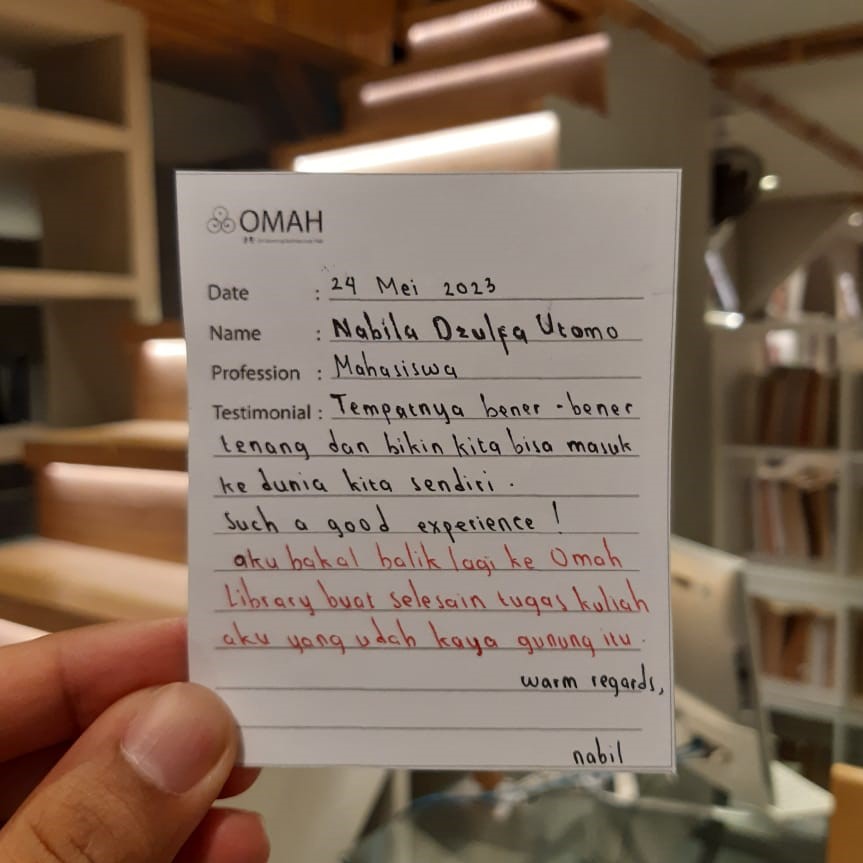 OMAH
Date : 24 Mei 2023
Name : Nabila Dzulfa Utomo
Profession : Mahasiswa
Testimonial : Tempatnya bener-bener
tenang dan bikin kita bisa masuk
ke dunia kita sendiri.
Such a good experience!
aku bakal balik lagi ke Omah
Library buat selesain tugas kuliah
aku yang udah kaya gunung itu.
warm regards,
nabil